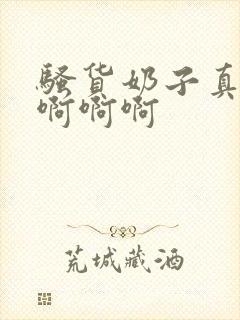 骚货奶子真
啊啊啊
荒城藏酒